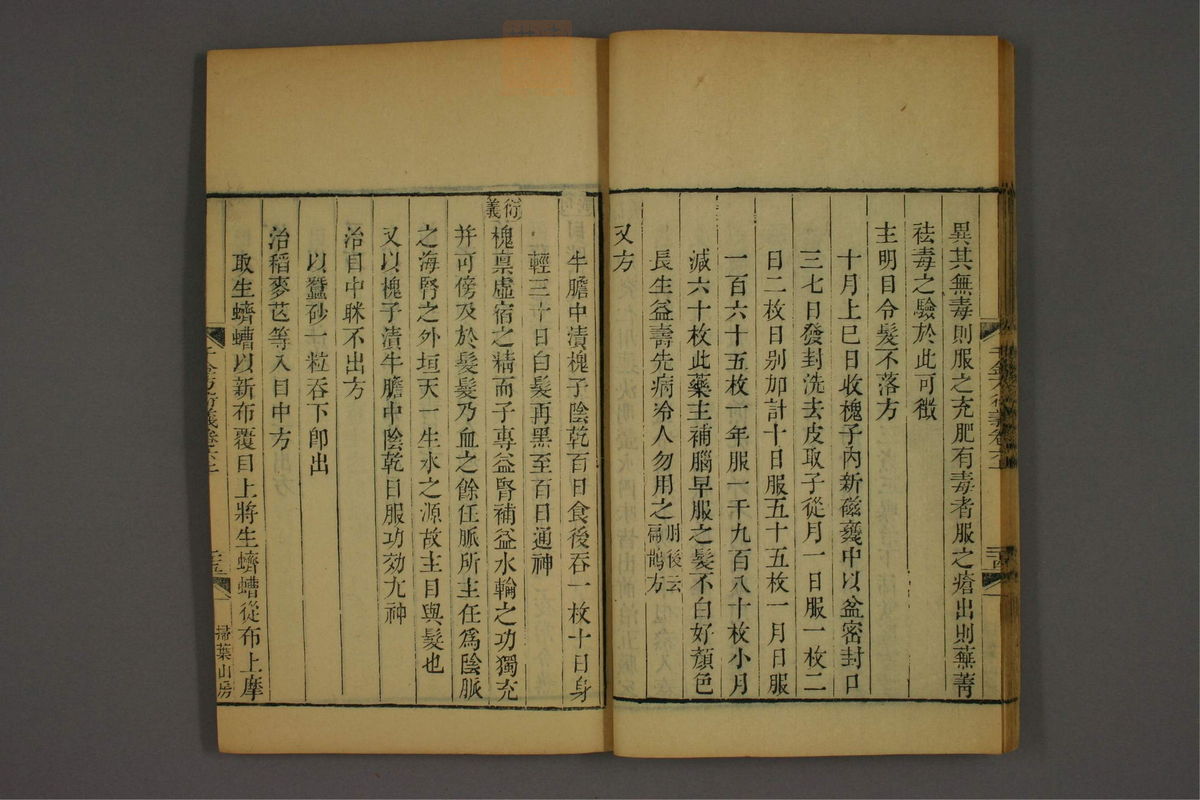 異其無毒則服之充肥有毒者服之瘡出則蕪菁
祛毒之驗於此可徵
主明目令髮不落方
十月上巳日收槐子內新磁甕中以盆密封口
三七日發封洗去皮取子從月一日服一枚二
日二枚日別加計十日服五十五枚一月日服
一百六十五枚一年服一千九百八十枚小月
減六十枚此藥主補腦早服之髮不白好顏色
長生益壽先病冷人勿用之肘後云扁鵲方
又方
牛膽中漬槐子陰乾百日食後吞一枚十日身
輕三十日白髮再黑至百日通神
衍義
槐稟虛宿之精而子專益腎補益水輪之功獨充
并可傍及於髮髮乃血之餘任脈所主任為陰脈
之海腎之外垣天一生水之源故主目與髮也
又以槐子漬牛膽中陰乾日服功効尤神
治目中眯不出方
以蠶砂一粒吞下即出
治稻麥芒等入目中方
取生蠐螬以新布覆目上將生蠐螬從布上摩
千金方衍義卷六上
掃葉山房